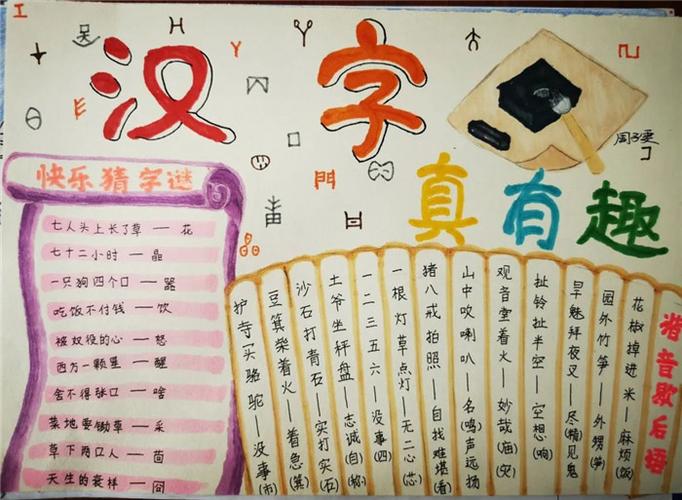 工
汉字
真有趣
門
快乐猜字谜
七人头上长了草 — 花
七十二小时 — 晶
一只狗四个口 — 器
吃饭不付钱 — 饮
被奴役的心 — 怒
西方一颗星 — 醒
舍不得张口 — 啥
菜地要锄草 — 采
草下两口人 — 茴
天生的衰样 — 冏
谐音歇后语
花椒掉进米——麻烦(饭)
园外竹笋——外甥(笋)
旱魅拜夜叉——尽(精)见鬼
扯铃扯半空——空想(响)
观音堂着火——妙哉(庙)(灾)
山中吹喇叭——名(鸣)声远扬
猪八戒拍照——自找难堪(看)
一根灯草点灯——无二心(芯)
一二三五六——没事(四)
土爷坐秤盘——志诚(自)(称)
沙石打青石——实打实(石)
豆箕柴着火——着急(箕)
护寺一头骆驼——没事(市)